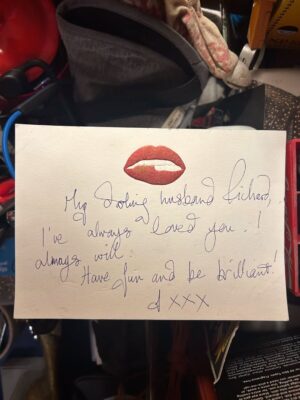 My darling husband Richard,
I've always loved you!
always will.
Have fun and be brilliant!
xxx